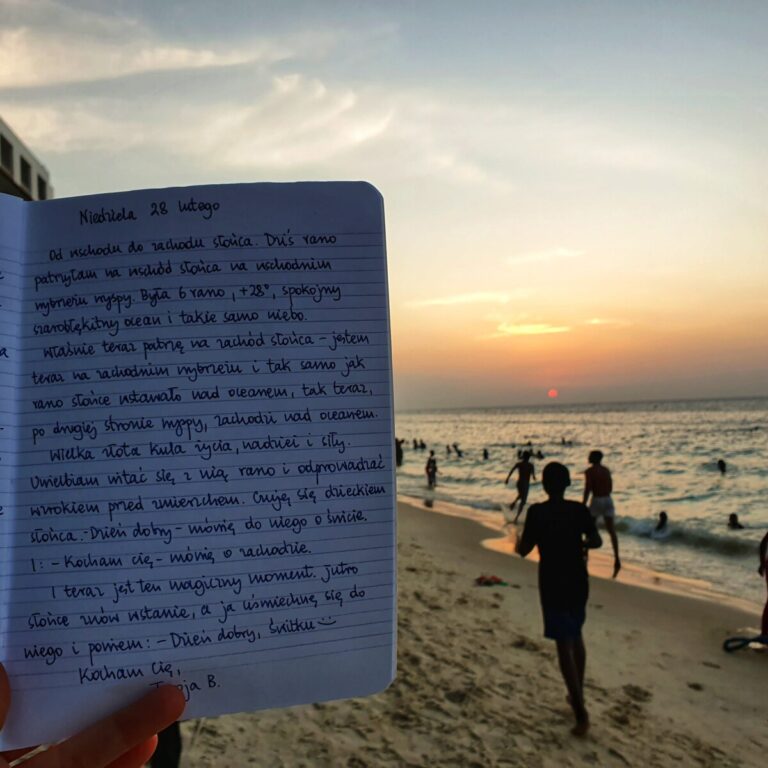 Niedziela 28 lutego
Od wschodu do zachodu słońca. Dziś rano
patrzyłam na wschód słońca na wschodnim
wybrzeżu wyspy. Była 6 rano, +28°, spokojny
szarobłękitny ocean i takie samo niebo.
Właśnie teraz patrzę na zachód słońca - jestem
teraz na zachodnim wybrzeżu i tak samo jak
rano słońce wstawało nad oceanem, tak teraz,
po drugiej stronie wyspy, zachodzi nad oceanem.
Wielka złota kula życia, nadziei i siły.
Uwielbiam witać się z nią rano i odprowadzać
wzrokiem przed zmierzchem. Czuję się dzieckiem
słońca. - Dzień dobry - mówię do niego o świcie.
I: - Kocham cię - mówię o zachodzie.
I teraz jest ten magiczny moment. Jutro
słońce znów wstanie, a ja uśmiechnę się do
niego i powiem: - Dzień dobry, świtku
Kocham Cię,
B.